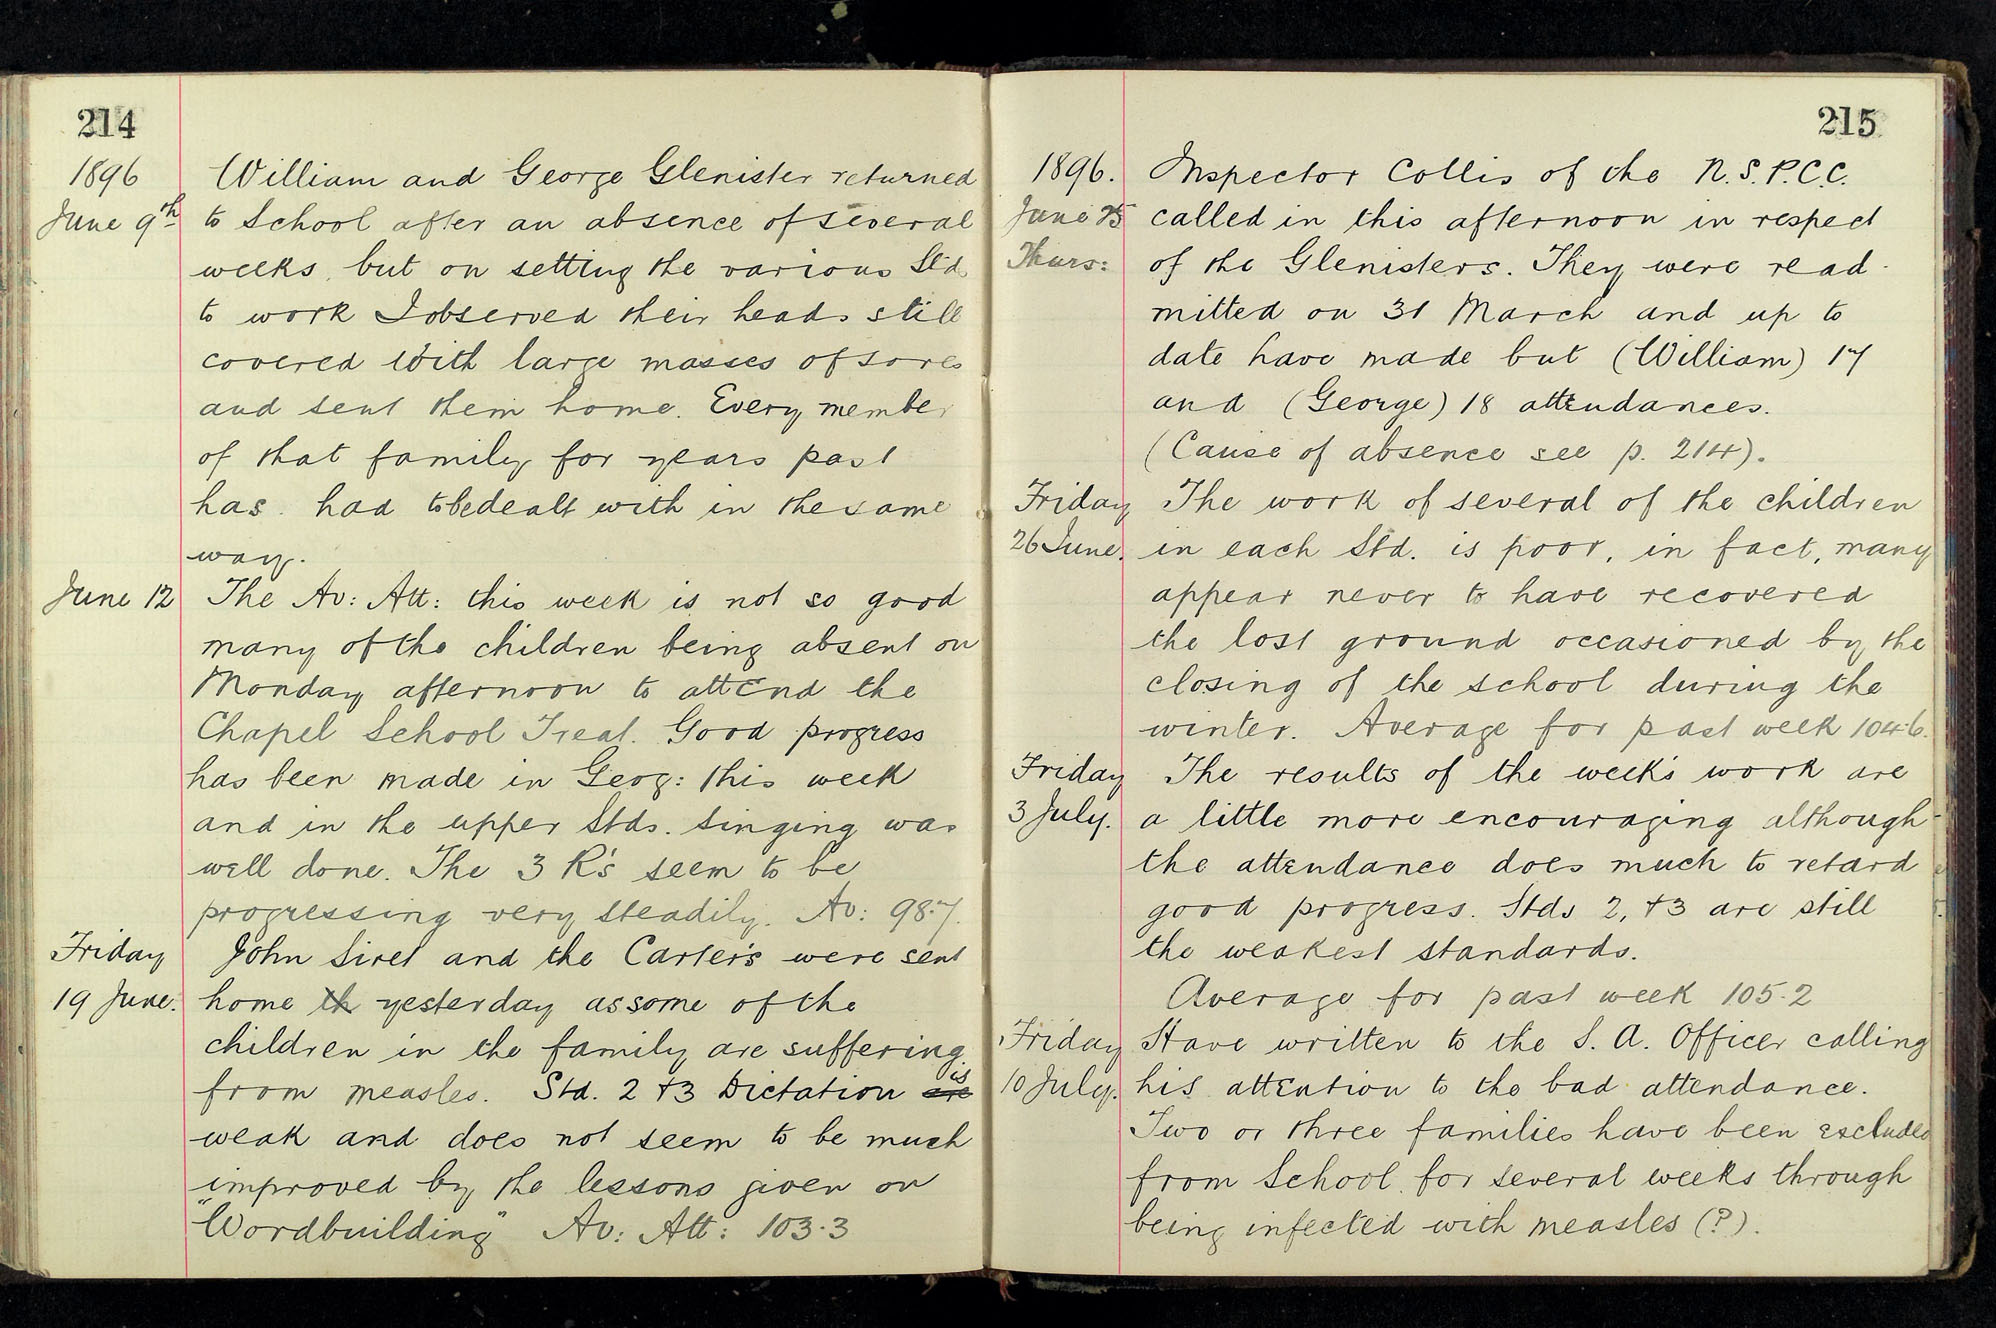 214
1896
June 9th
William and George Glenister returned
to School after an absence of several
weeks, but on setting the various Stds
to work I observed their heads still
covered with large masses of sores
and sent them home. Every member
of that family for years past
has had to be dealt with in the same
way.
June 12
The Av: Att: this week is not so good
many of the children being absent on
Monday afternoon to attend the
Chapel School Treat. Good progress
has been made in Geog: this week
and in the upper Stds. Singing was
well done. The 3 R's seem to be
progressing very steadily. Av: 98.7.
Friday
19 June.
John Siret and the Carter's were sent
home th yesterday as some of the
children in the family are suffering
from measles. Std. 2 & 3 Dictation are is
weak and does not seem to be much
improved by the lessons given on
"Wordbuilding" Av: Att: 103.3
215
1896.
June 25
Thurs:
Inspector Collis of the N.S.P.C.C.
called in this afternoon in respect
of the Glenisters. They were read-
mitted on 31 March and up to
date have made but (William) 17
and (George) 18 attendances.
(Cause of absence see p. 214).
Friday
26 June.
The work of several of the children
in each Std. is poor, in fact, many
appear never to have recovered
the lost ground occasioned by the
closing of the school during the
winter. Average for past week 104.6.
Friday
3 July.
The results of the week's work are
a little more encouraging although
the attendance does much to retard
good progress. Stds 2, & 3 are still
the weakest standards.
Average for past week 105.2
Friday
10 July.
Have written to the S. A. Officer calling
his attention to the bad attendance.
Two or three families have been excluded
from School for several weeks through
being infected with measles (?).